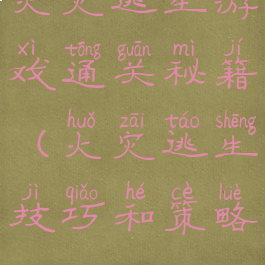 火灾逃生游
xì tōng guān mì jí
戏通关秘籍
huǒ zāi táo shēng
（火灾逃生
jì qiǎo hé cè lüè
技巧和策略